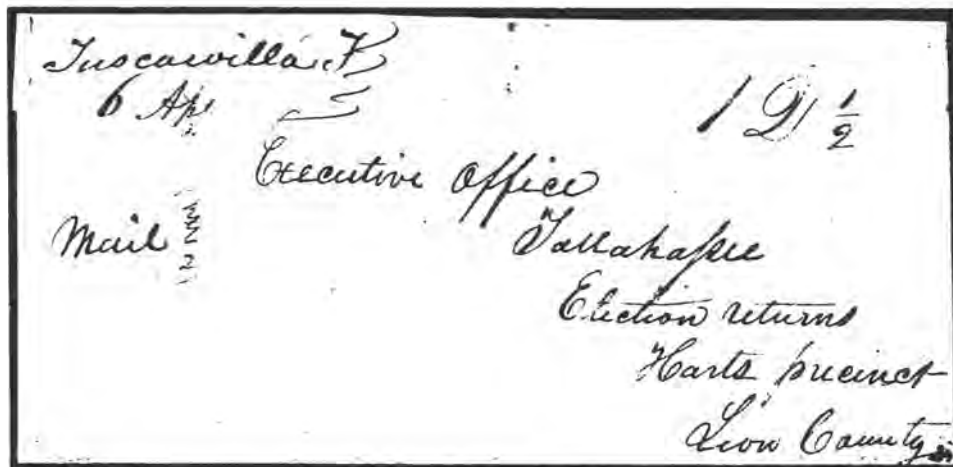 Tuscawilla, F
6 Ap.
12 1/2
Executive Office
Mail
Tallahassee
Election returns
Harts precinct
Leon County